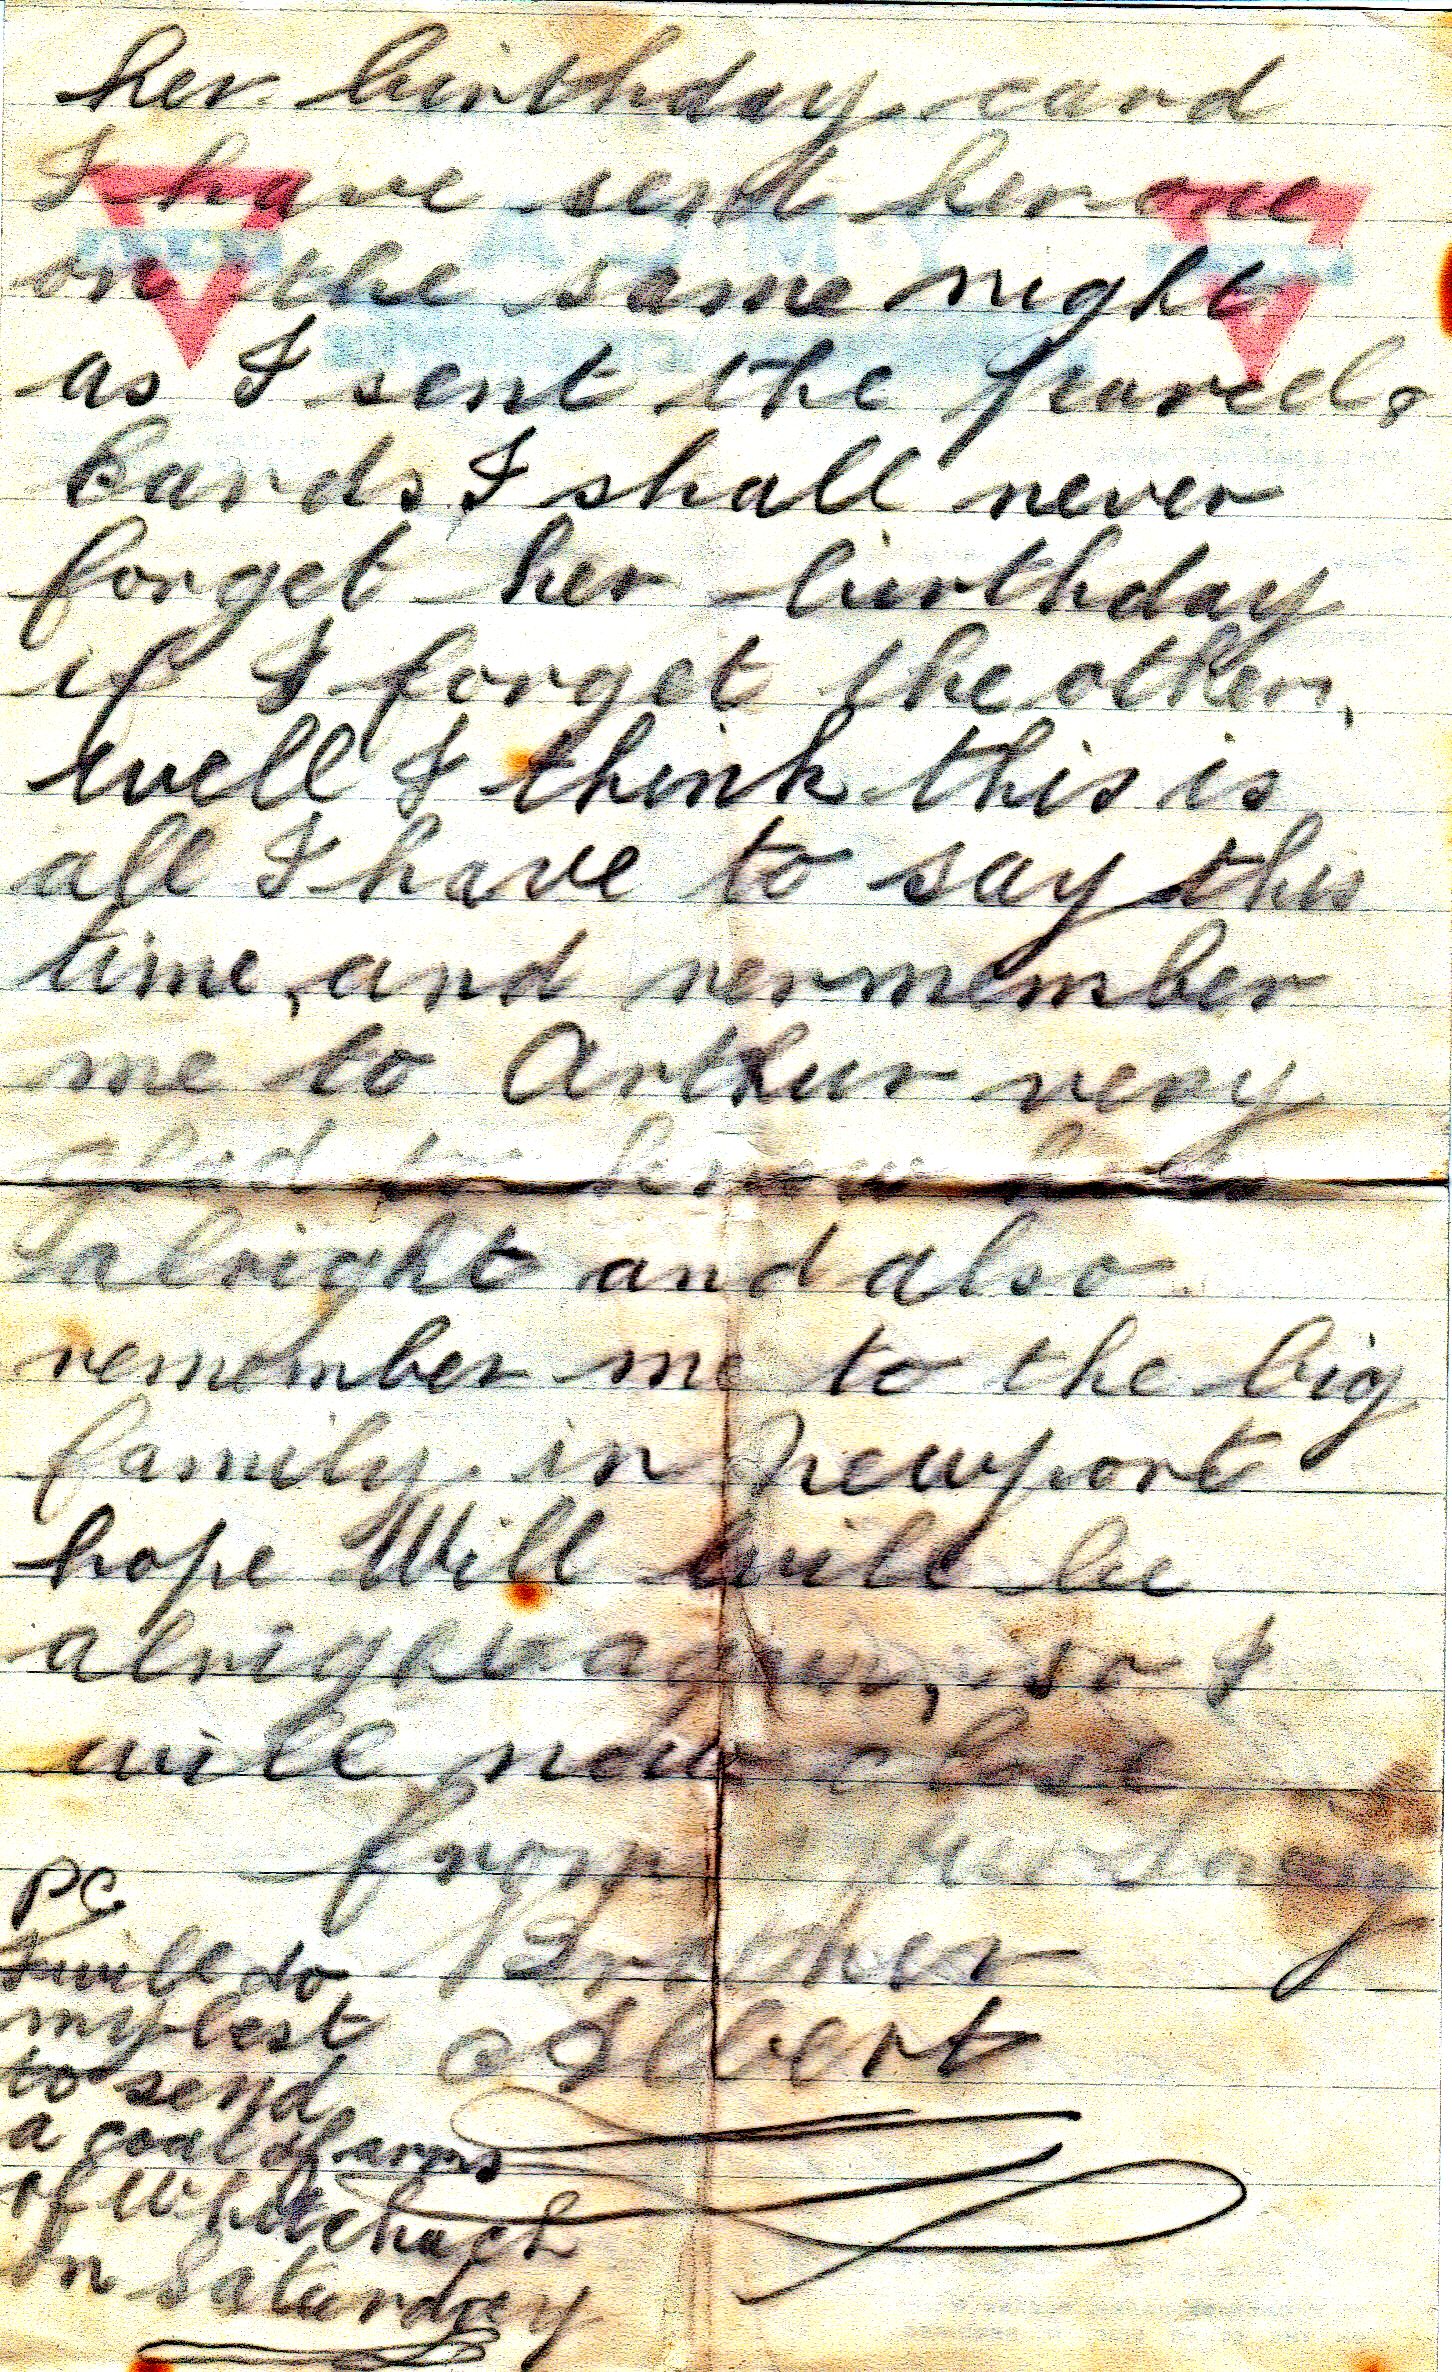 her birthday card
I have sent her one
on the same night
as I sent the parcel,
Cards I shall never
forget her birthday
if I forget the others,
well I think this is
all I have to say this
time, and rermember
me to Arthur very
glad to know he is
alright and also
remember me to the big
family. in Newport
hope Will will be
alright again, so I
will now close
from your loving
Brother
Albert
PC
I will do
my best
to send
a coat of arms
of Whitchuch
on Saturday